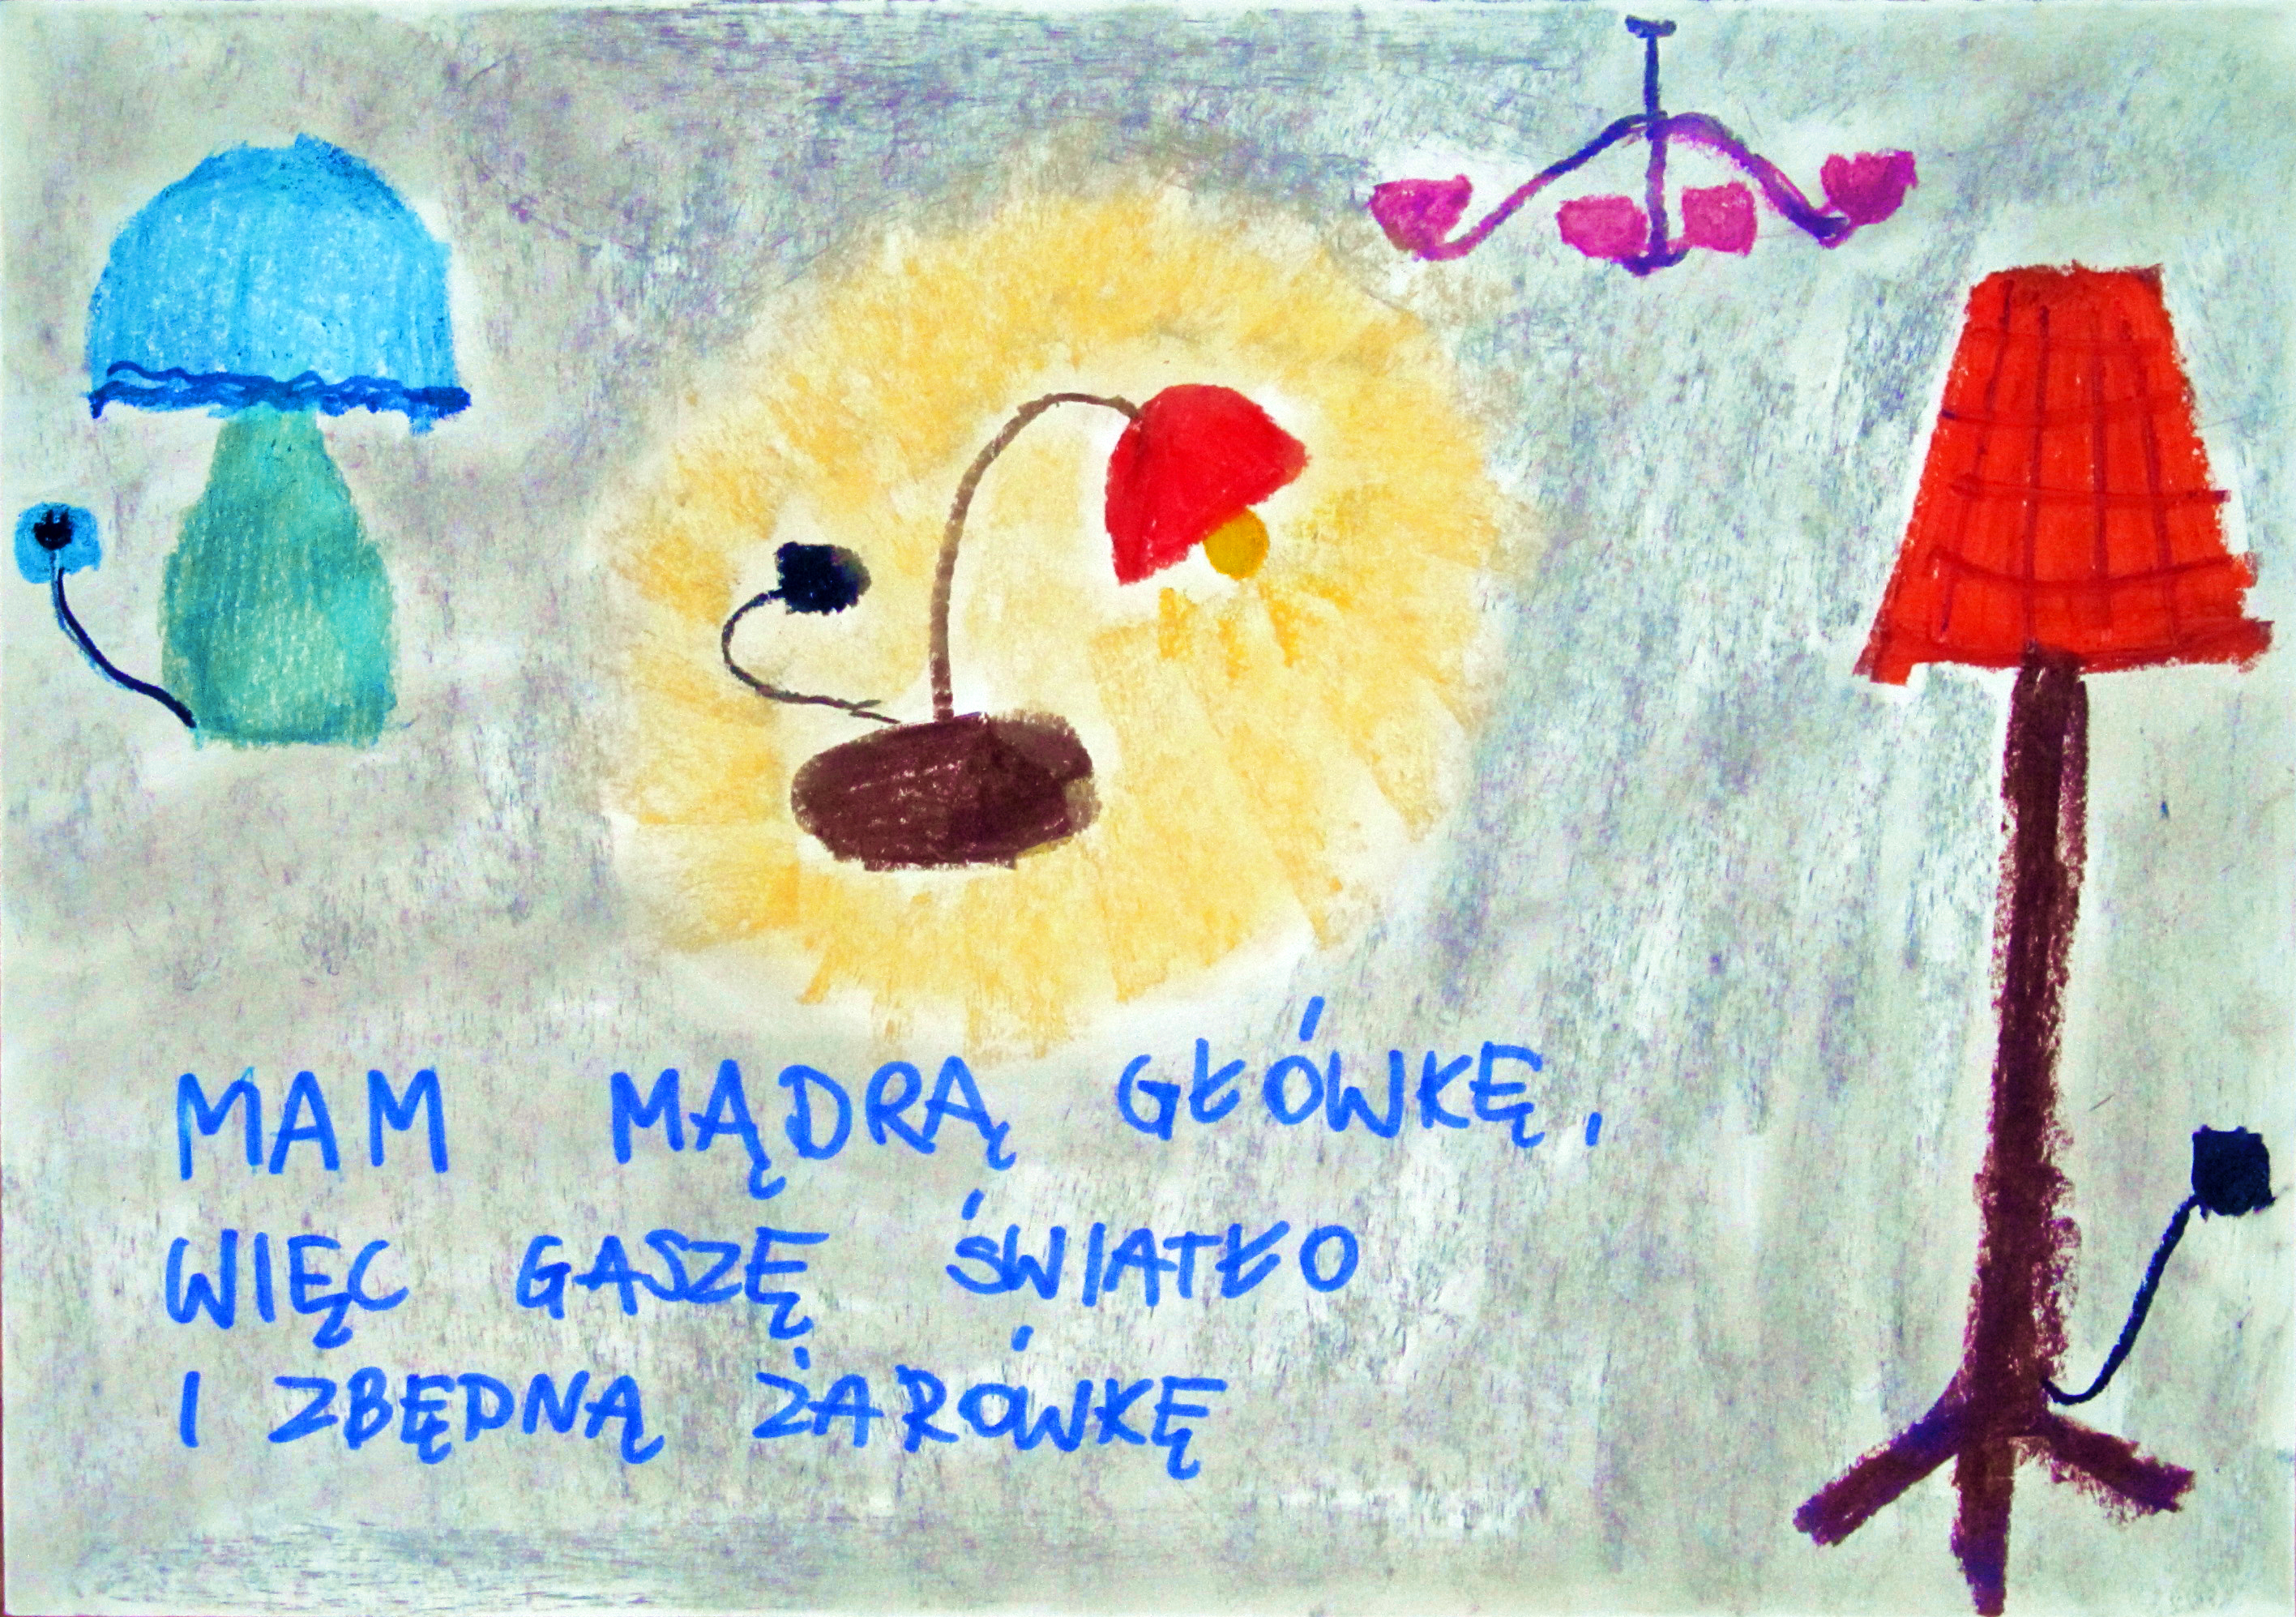 MAM MĄDRĄ GŁÓWKĘ,
WIĘC GASZĘ ŚWIATŁO
I ZBĘDNĄ ŻARÓWKĘ